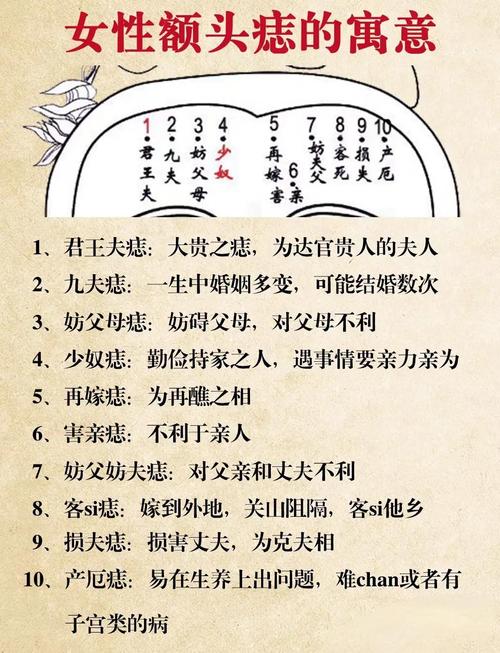 女性额头痣的寓意
1 君王夫
2 九夫
3 妨父母
4 少奴
5 再嫁
6 害亲
7 妨夫父
8 客死
9 损失
10 产厄
1、君王夫痣：大贵之痣，为达官贵人的夫人
2、九夫痣：一生中婚姻多变，可能结婚数次
3、妨父母痣：妨碍父母，对父母不利
4、少奴痣：勤俭持家之人，遇事情要亲力亲为
5、再嫁痣：为再醮之相
6、害亲痣：不利于亲人
7、妨父妨夫痣：对父亲和丈夫不利
8、客si痣：嫁到外地，关山阻隔，客si他乡
9、损夫痣：损害丈夫，为克夫相
10、产厄痣：易在生养上出问题，难chan或者有
子宫类的病